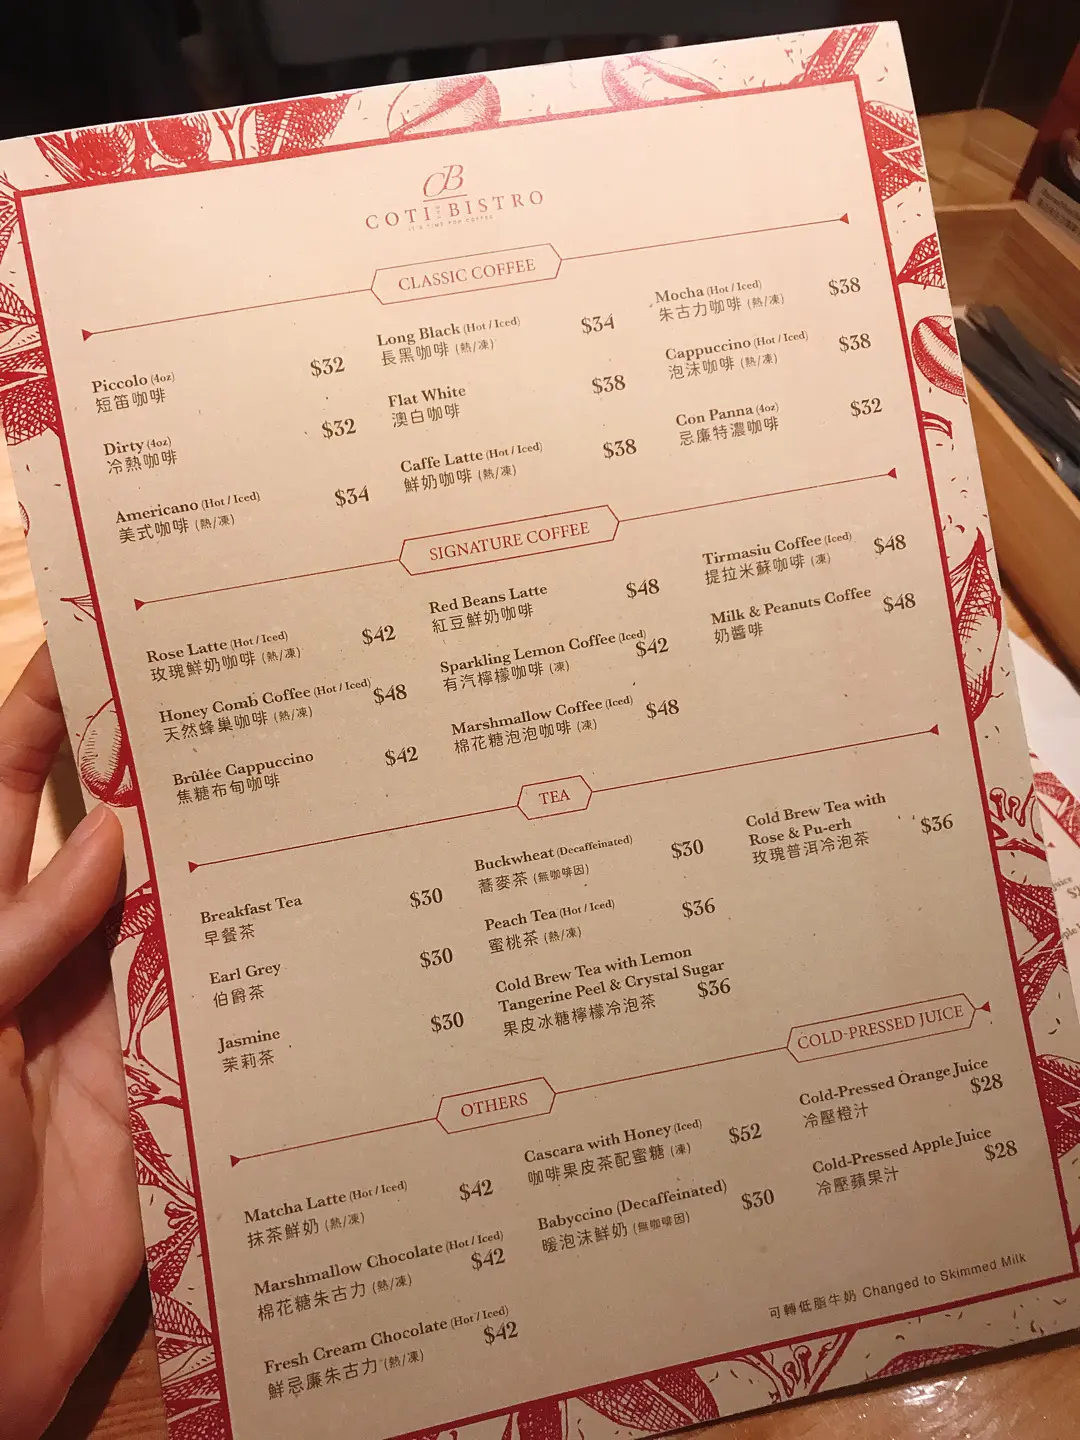 CB
COTI BISTRO
IT'S TIME FOR COFFEE
CLASSIC COFFEE
Piccolo (4oz) $32
短笛咖啡
Dirty (4oz) $32
冷熱咖啡
Americano (Hot / Iced) $34
美式咖啡 (熱/凍)
Long Black (Hot / Iced) $34
長黑咖啡 (熱/凍)
Flat White $38
澳白咖啡
Caffe Latte (Hot / Iced) $38
鮮奶咖啡 (熱/凍)
Mocha (Hot / Iced) $38
朱古力咖啡 (熱/凍)
Cappuccino (Hot / Iced) $38
泡沫咖啡 (熱/凍)
Con Panna (4oz) $32
忌廉特濃咖啡
SIGNATURE COFFEE
Rose Latte (Hot / Iced) $42
玫瑰鮮奶咖啡 (熱/凍)
Honey Comb Coffee (Hot / Iced) $48
天然蜂巢咖啡 (熱/凍)
Brûlée Cappuccino $42
焦糖布甸咖啡
Red Beans Latte $48
紅豆鮮奶咖啡
Sparkling Lemon Coffee (Iced) $42
有汽檸檬咖啡 (凍)
Marshmallow Coffee (Iced) $48
棉花糖泡泡咖啡 (凍)
Tirmasiu Coffee (Iced) $48
提拉米蘇咖啡 (凍)
Milk & Peanuts Coffee $48
奶醬啡
TEA
Breakfast Tea $30
早餐茶
Earl Grey $30
伯爵茶
Jasmine $30
茉莉茶
Buckwheat (Decaffeinated) $30
蕎麥茶 (無咖啡因)
Peach Tea (Hot / Iced) $36
蜜桃茶 (熱/凍)
Cold Brew Tea with Lemon
Tangerine Peel & Crystal Sugar $36
果皮冰糖檸檬冷泡茶
Cold Brew Tea with
Rose & Pu-erh $36
玫瑰普洱冷泡茶
OTHERS
Matcha Latte (Hot / Iced) $42
抹茶鮮奶 (熱/凍)
Marshmallow Chocolate (Hot / Iced) $42
棉花糖朱古力 (熱/凍)
Fresh Cream Chocolate (Hot / Iced) $42
鮮忌廉朱古力 (熱/凍)
Cascara with Honey (Iced) $52
咖啡果皮茶配蜜糖 (凍)
Babyccino (Decaffeinated) $30
暖泡沫鮮奶 (無咖啡因)
COLD-PRESSED JUICE
Cold-Pressed Orange Juice $28
冷壓橙汁
Cold-Pressed Apple Juice $28
冷壓蘋果汁
可轉低脂牛奶 Changed to Skimmed Milk